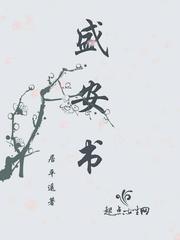 盛安书
居平遥著
起点女生网